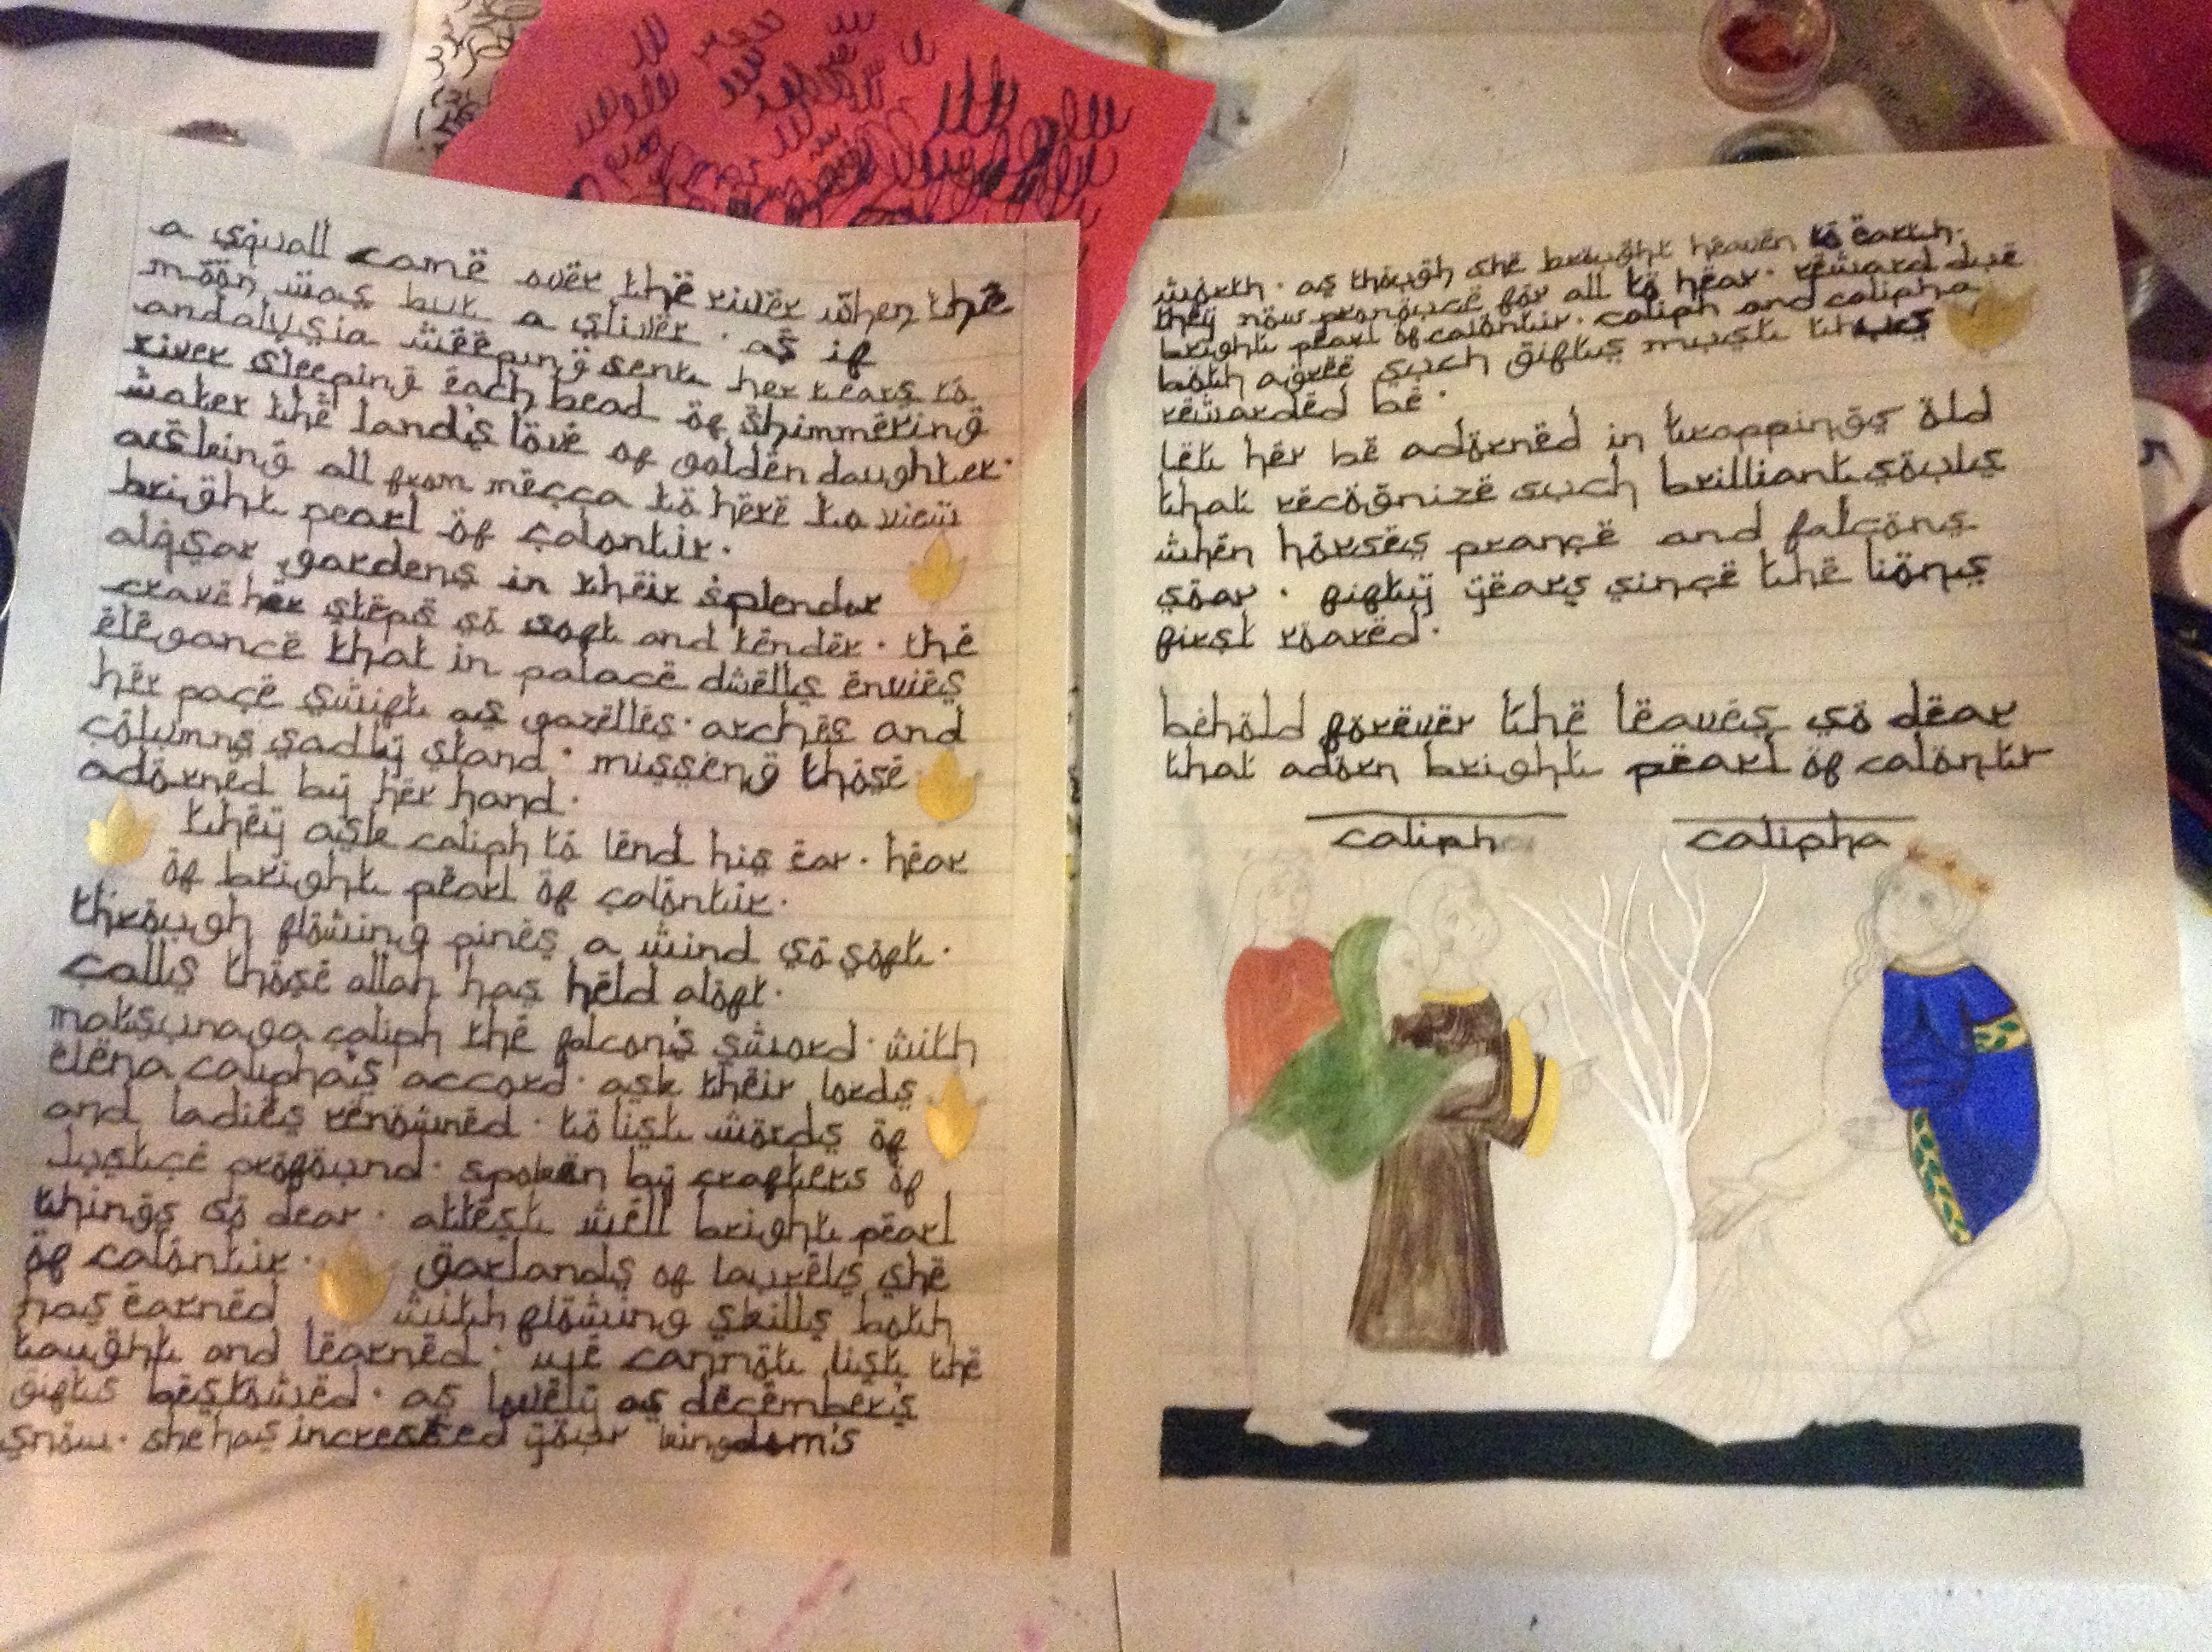 a squall came over the river when the
moon was but a sliver · as if
andalusia weeping sent her tears to
river sleeping each bead of shimmering
water the land's love of golden daughter ·
asking all from mecca to here to view
bright pearl of calontir ·
alqsar gardens in their splendor
crave her steps so soft and tender · the
elegance that in palace dwells envies
her pace swift as gazelles · arches and
columns sadly stand · misseng those
adorned by her hand ·
they ask caliph to lend his ear · hear
of bright pearl of calontir ·
through flowing pines a wind so soft ·
calls those allah has held aloft ·
matsunaga caliph the falcon's sword · with
elena calipha's accord · ask their lords
and ladies renowned · to list words of
justice profound · spoken by crafters of
things so dear · attest well bright pearl
of calontir · garlands of laurels she
has earned with flowing skills both
taught and learned · we cannot list the
gifts bestowed · as lovely as december's
snow · she has increased your kingdom's
worth · as though she brought heaven to earth ·
they now pronouce for all to hear · reward due
bright pearl of calontir · caliph and calipha
both agree such gifts must
rewarded be ·
let her be adorned in trappings old
that recognize such brilliant souls
when horses prance and falcons
soar · fifty years since the lions
first roared ·
behold forever the leaves so dear
that adorn bright pearl of calontir
caliph calipha